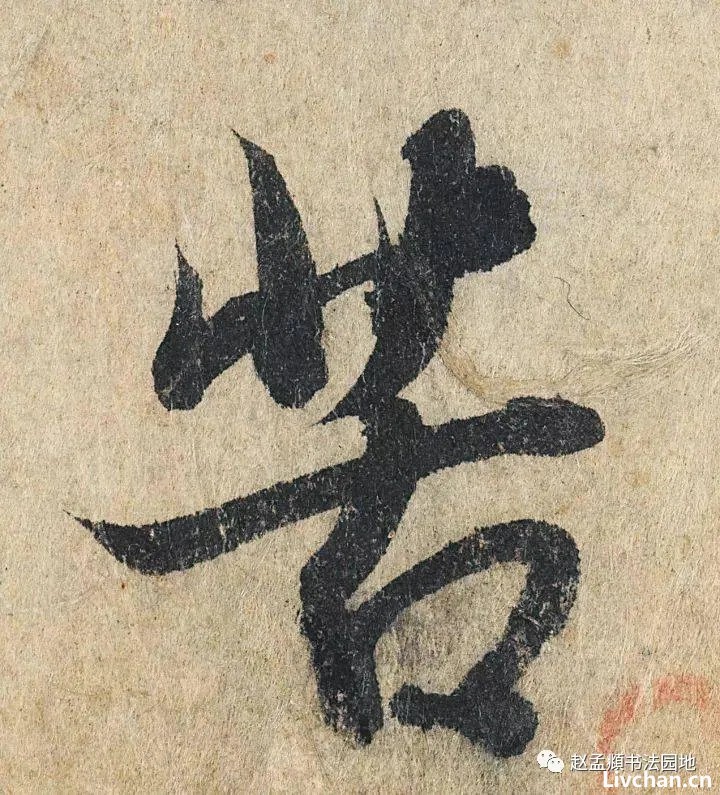 苦
赵孟頫书法园地
Livchan.cn